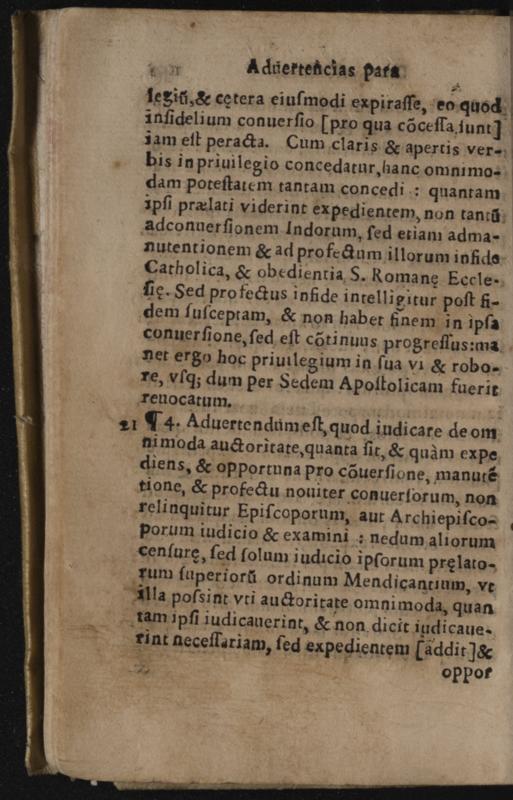 Aduertencias para
legiũ, & cętera eiuſmodi expiraſſe, eo quod
infidelium conuerſio [pro qua cõceſſa, ſunt]
iam eſt peracta. Cum claris & apertis ver-
bis in priuilegio concedatur, hanc omnimo-
dam poteſtatem tantam concedi : quantam
ipſi prælati viderint expedientem, non tantũ
adconuerſionem Indorum, ſed etiam adma-
nutentionem & ad profectum illorum infide
Catholica, & obedientia S. Romanę Eccle-
ſię. Sed profectus infide intelligitur poſt fi-
dem ſuſceptam, & non habet finem in ipſa
conuerſione, ſed eſt cõtinuus progreſſus: ma
net ergo hoc priuilegium in ſua vi & robo-
re, vſq; dum per Sedem Apoſtolicam fuerit
reuocatum.
21 ¶ 4. Aduertendum eſt, quod iudicare de om
nimoda auctoritate, quanta ſit, & quàm expe
diens, & opportuna pro cõuerſione, manutẽ
tione, & profectu nouiter conuerſorum, non
relinquitur Epiſcoporum, aut Archiepiſco-
porum iudicio & examini : nedum aliorum
cenſurę, ſed ſolum iudicio ipſorum pręlato-
rum ſuperiorũ ordinum Mendicantium, vt
illa poſsint vti auctoritate omnimoda, quan
tam ipſi iudicauerint, & non dicit iudicaue-
rint neceſſariam, ſed expedientem [addit] &
oppor